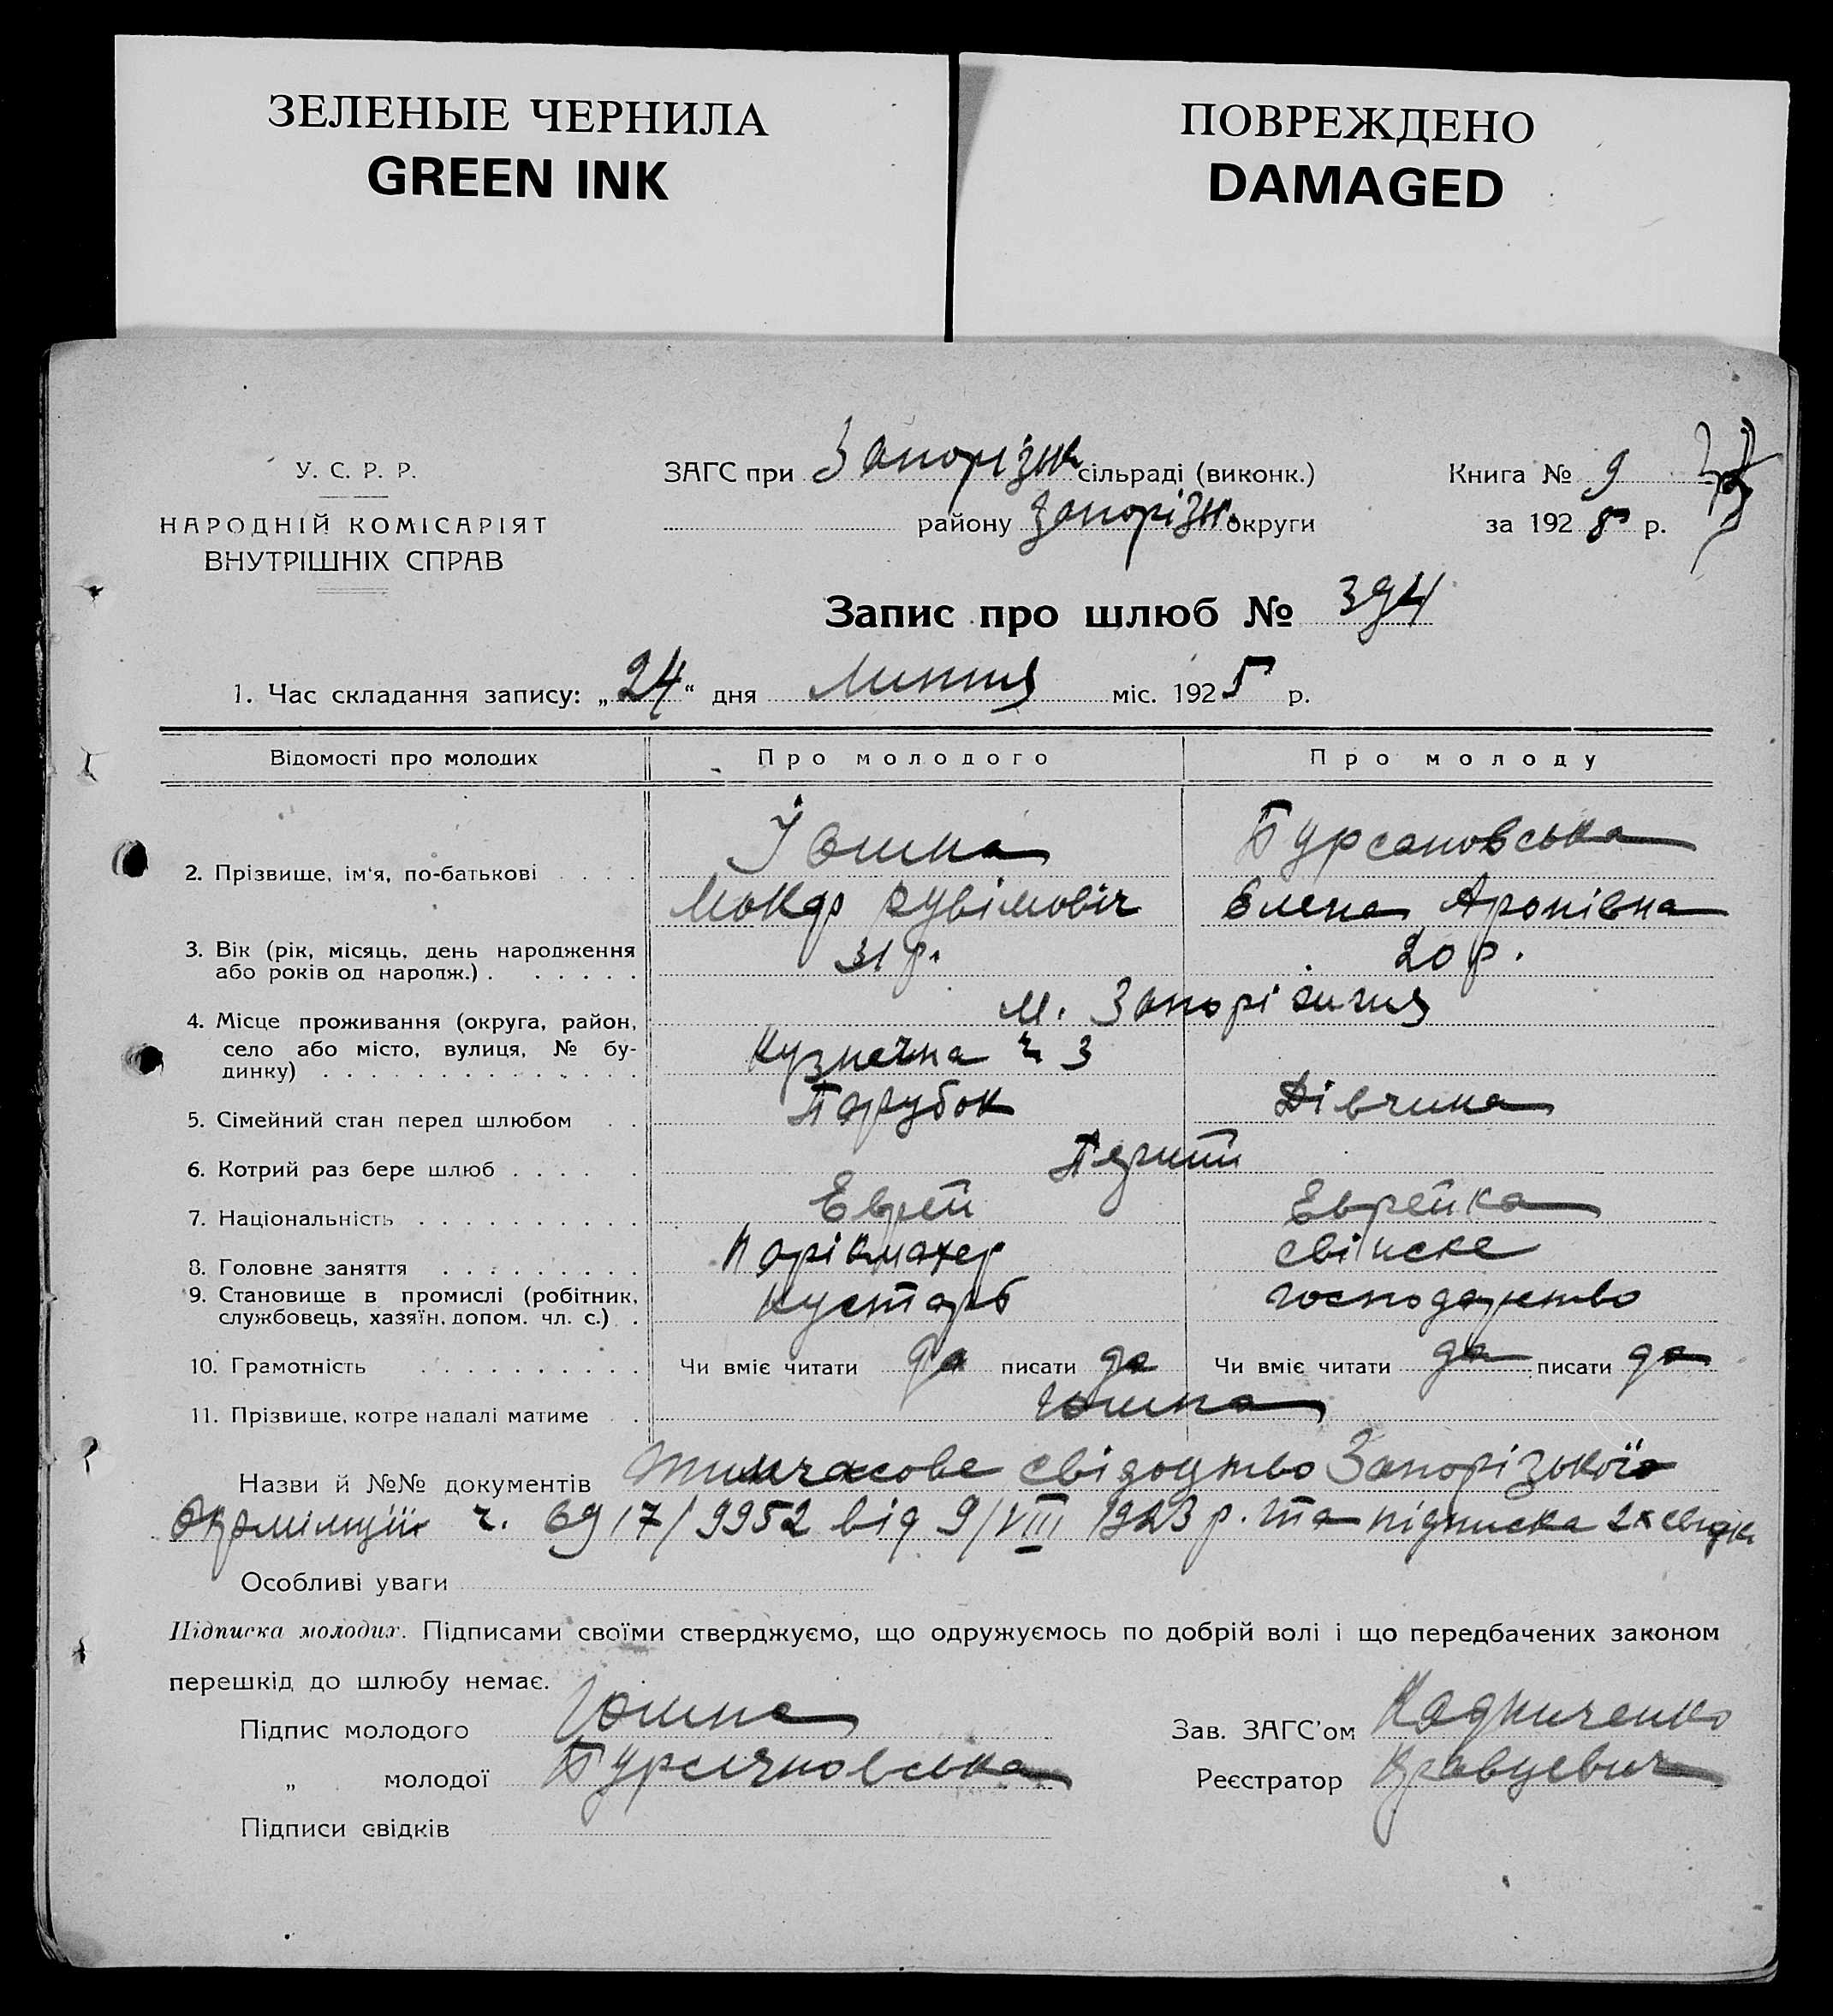 ЗЕЛЕНЫЕ ЧЕРНИЛА
GREEN INK
ПОВРЕЖДЕНО
DAMAGED
У. С. Р. Р.
НАРОДНІЙ КОМІСАРІЯТ
ВНУТРІШНІХ СПРАВ
ЗАГС при Запорізьк сільраді (виконк.)
району Запорізьк. округи
Книга № 9
за 1925 р.
Запис про шлюб № 394
1. Час складання запису: „24“ дня Липня міс. 1925 р.
Відомості про молодих Про молодого Про молоду
2. Прізвище, ім‘я, по-батькові . . . .
Бурсановська
Рувімовіч Елена Аронівна
3. Вік (рік, місяць, день народження
або років од народж.) . . . . . .
31 р. 20 р.
4. Місце проживання (округа, район,
село або місто, вулиця, № бу-
динку) . . . . . . . . . . . . . .
м. Запоріжжя
Кузнечна ч 3
5. Сімейний стан перед шлюбом . . Парубок Дівчина
6. Котрий раз бере шлюб . . . . . Перший
7. Національність . . . . . . . . . . Еврей Еврейка
8. Головне заняття . . . . . . . . . Парікмахер свійске
9. Становище в промислі (робітник,
службовець, хазяїн, допом. чл. с.) . Кустарь господарство
10. Грамотність . . . . . . . . . . Чи вміє читати да писати да Чи вміє читати да писати да
11. Прізвище, котре надалі матиме . Юшна
Назви й №№ документів Тимчасове свідоцтво Запорізької
Окрміліції ч. 6917/9952 від 9/VIII 1923 р. та підписка 2х свідк
Особливі уваги
Підписка молодих. Підписами своїми стверджуємо, що одружуємось по добрій волі і що передбачених законом
перешкід до шлюбу немає.
Підпис молодого Юшна
Зав. ЗАГС’ом
„ молодої
Реєстратор Кравцевич
Підписи свідків